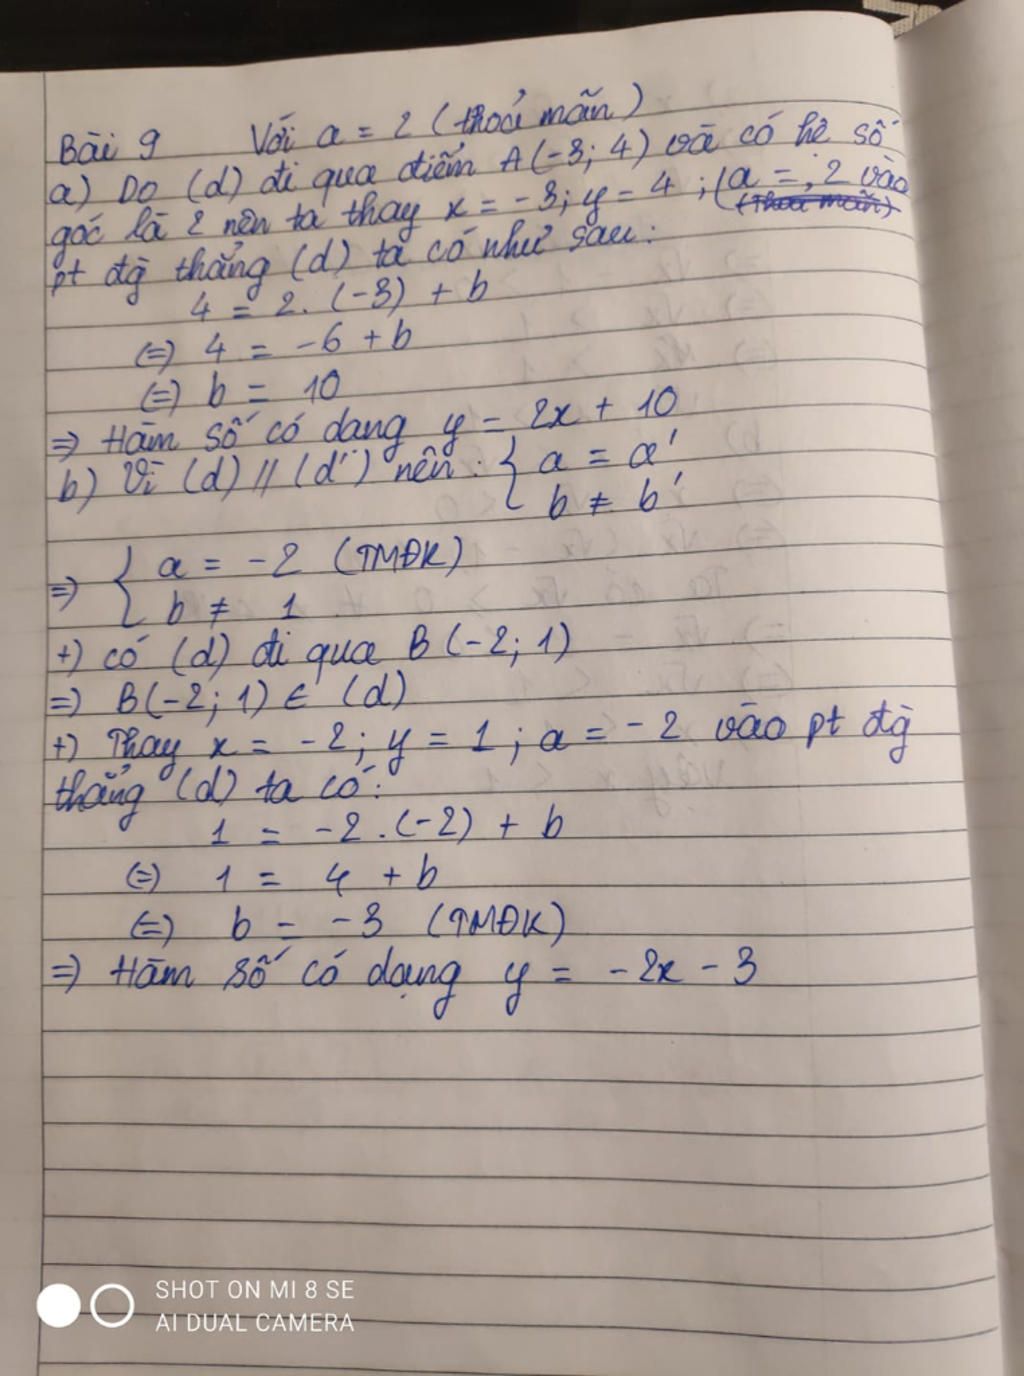 Bài 9 Với a = 2 (thoả mãn)
a) Do (d) đi qua điểm A(-3; 4) và có hệ số
góc là 2 nên ta thay x = -3; y = 4 ; (a = ; 2 vào
(Thoả mãn)
pt đg thẳng (d) ta có như sau:
4 = 2. (-3) + b
(=) 4 = -6 + b
(=) b = 10
=> Hàm số có dạng y = 2x + 10
b) Vì (d) // (d') nên : { a = a'
b ≠ b'
=> { a = -2 (TMĐK)
b ≠ 1
+) có (d) đi qua B (-2; 1)
=> B(-2; 1) ∈ (d)
+) Thay x = -2; y = 1 ; a = -2 vào pt đg
thẳng (d) ta có:
1 = -2.(-2) + b
(=) 1 = 4 + b
(=) b = -3 (TMĐK)
=> Hàm số có dạng y = -2x - 3
SHOT ON MI 8 SE
AI DUAL CAMERA